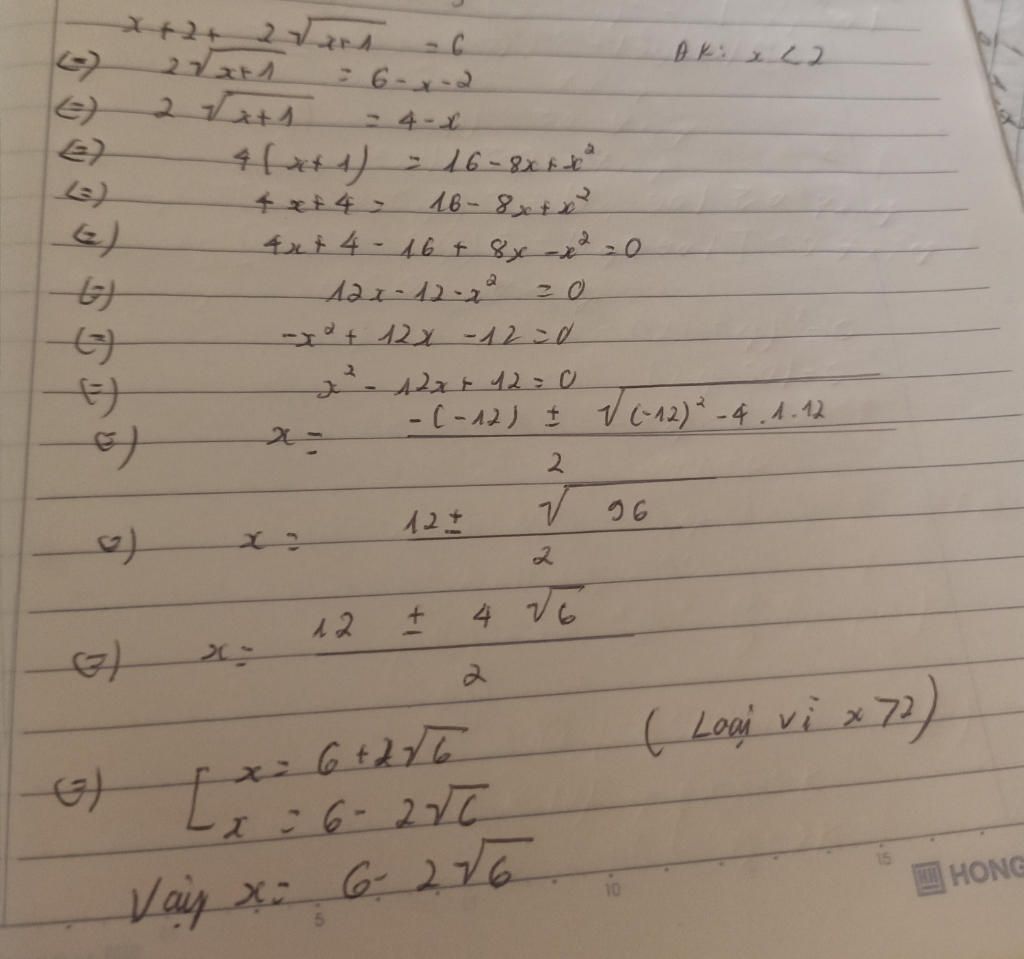 x + 2 + 2√(x+1) = 6 ĐK: x < 2
<=> 2√(x+1) = 6 - x - 2
<=> 2√(x+1) = 4 - x
<=> 4(x+1) = 16 - 8x + x²
<=> 4x + 4 = 16 - 8x + x²
<=> 4x + 4 - 16 + 8x - x² = 0
<=> 12x - 12 - x² = 0
<=> -x² + 12x - 12 = 0
<=> x² - 12x + 12 = 0
<=> x = (-(-12) ± √((-12)² - 4.1.12))/2
<=> x = (12 ± √96)/2
<=> x = (12 ± 4√6)/2
<=> [ x = 6 + 2√6 (Loại vì x > 2)
x = 6 - 2√6
Vậy x = 6 - 2√6
5 10 15
HONG